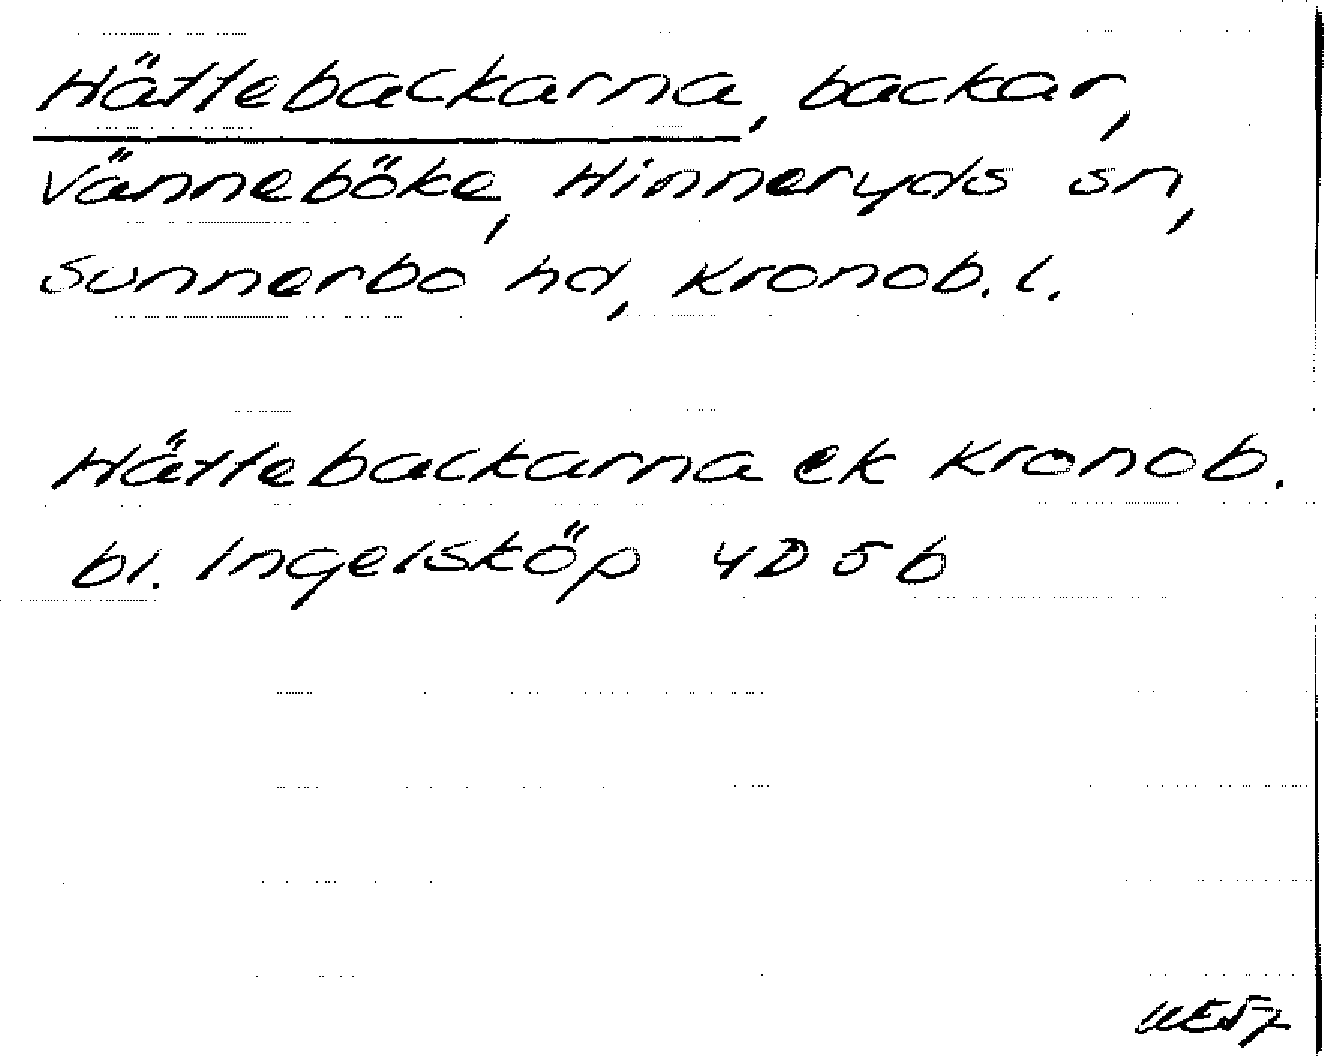 Hättebackarna, backar,
Vänneböke, Hinneryds sn,
Sunnerbo hd, Kronob. l.
Hättebackarna ek Kronob.
bl. Ingelsköp 4D 5b